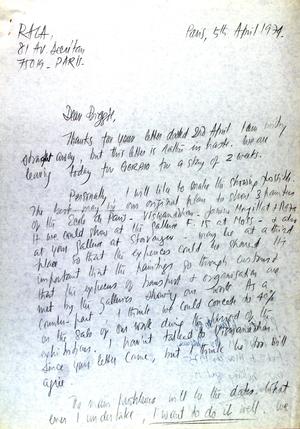 RAZA,
81 Av.
75019 - PARIS.
Paris, 5th April 1979.
Dear
Thanks for your letter dated 2nd April. I am writing
straight away, but this letter is rather in haste. We are
leaving today for GORBIO for a stay of 2 weeks.
Personally, I will like to make the showing possible.
The best may be our original plan to show 3 painters
of the Ecole de Paris - Viswanadhan, Janine Mongillat & Raza
If we could show at the Gallerie F. 15 at Moss - & also
at your Gallerie at Stavanger - may be at a third
place so that the expences could be shared. It
important that the paintings go through customs &
that the expences of transport & organisation are
met by the Galleries showing our work. As a
counter-part - I think we could concede to 40%
on the Sale of our work during the period of the
exhibitions. I havn't talked to Viswanadhan
since your letter came, but I think he too will
agree.
The main problems will be the dates. What
ever I undertake, I want to do it well. We